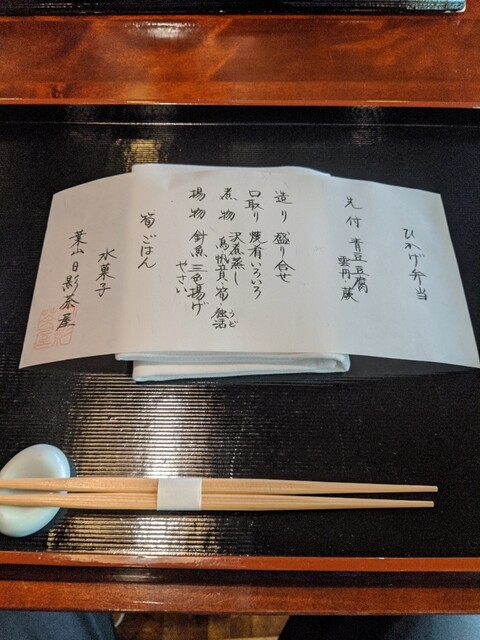 ひかげ弁当
先付 青豆豆腐
雲丹・蕨
造り 盛り合せ
口取り 焼肴いろいろ
煮物 沢煮蒸し
鳥帆立・筍・独活
うど
揚物 針魚三色揚げ
やさい
筍ごはん
水菓子
葉山 日影茶屋